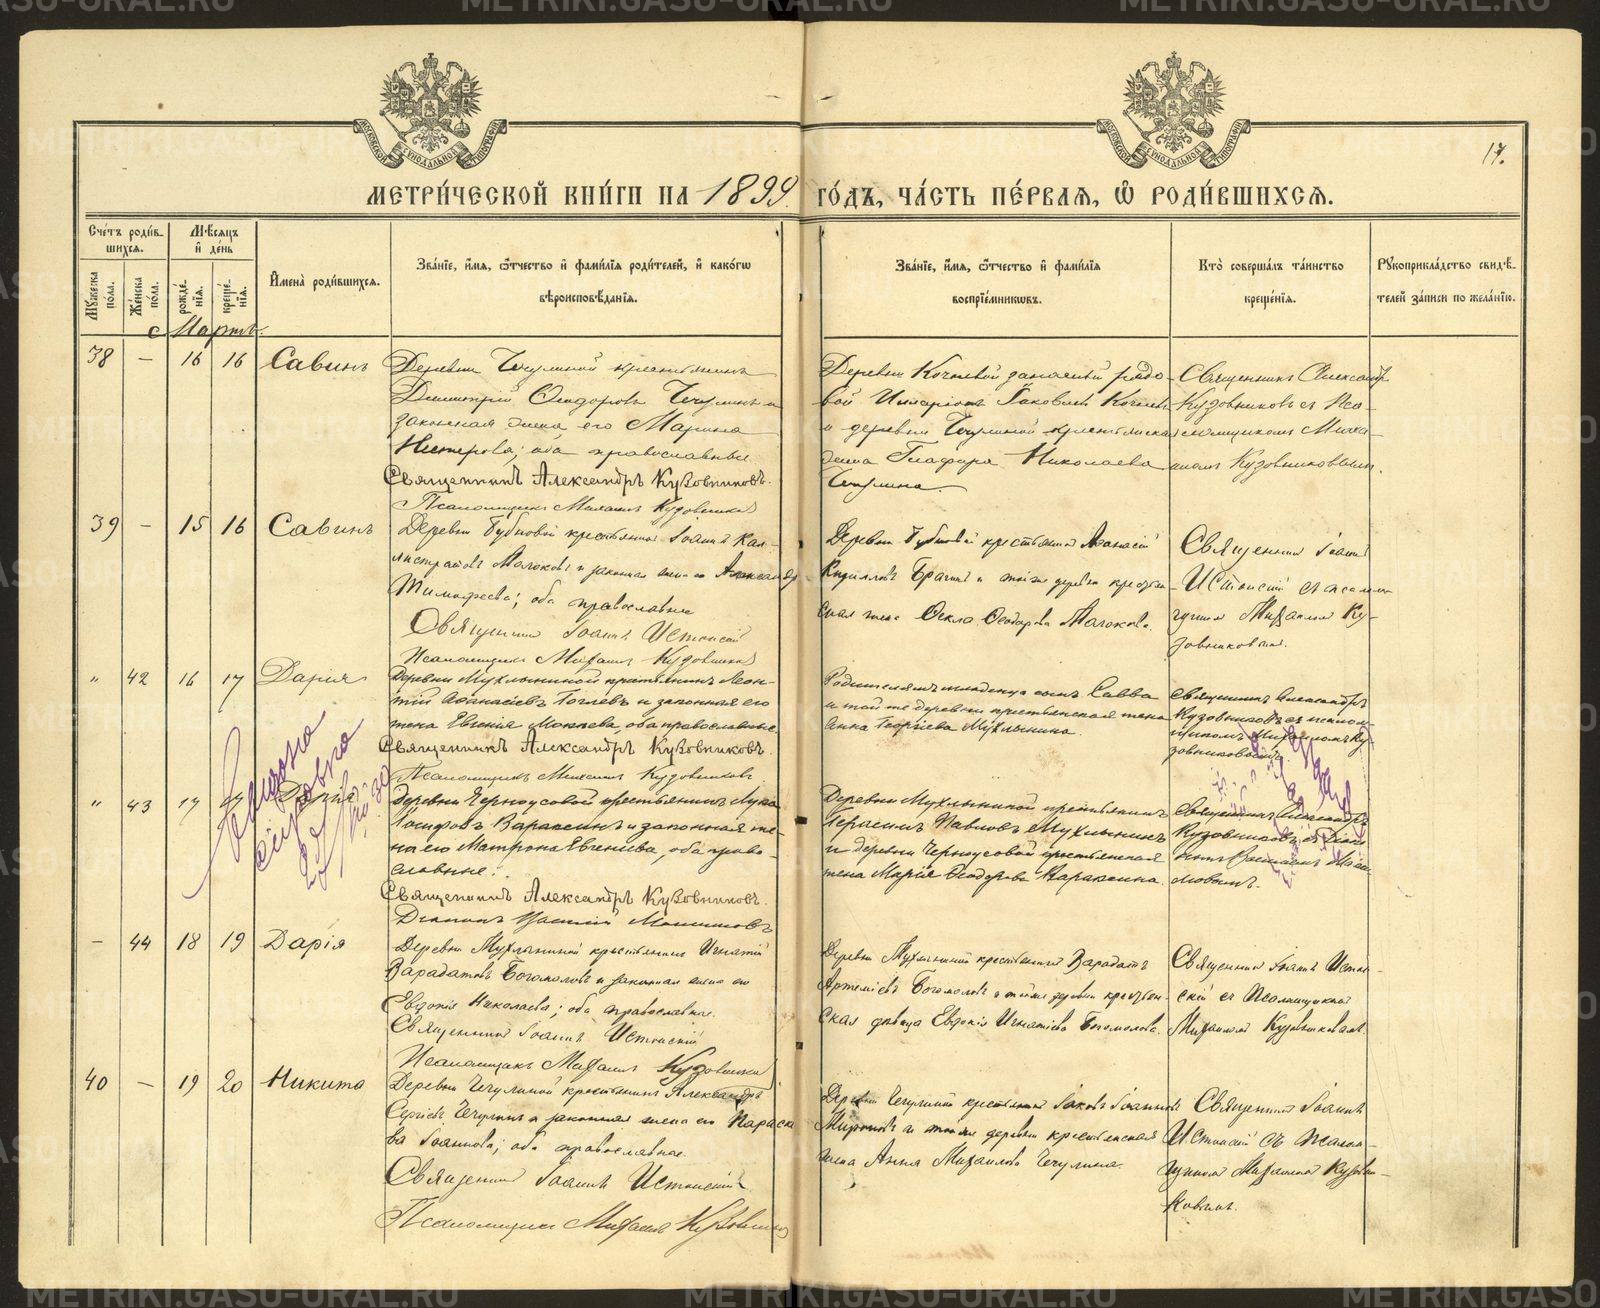 METRIKI.GASU-URAL.RU
МОСКОВСКОЙ СѴНОДАЛЬНОЙ ТИПОГРАФІИ
МОСКОВСКОЙ СѴНОДАЛЬНОЙ ТИПОГРАФІИ
17.
МЕТРИ́ЧЕСКОЙ КНИ́ГИ НА 1899. ГО́ДЪ, ЧА́СТЬ ПЕ́РВАЯ, Ѡ҆ РОДИ́ВШИХСЯ.
Сче́тъ роди́в-
шихся.
Мѣ́сяцъ
и҆ де́нь
Мꙋ́жеска
по́ла.
Же́нска
по́ла.
рожде́-
нїя.
креще́-
нїя.
И҆мена̀ роди́вшихся.
Зва́нїе, и҆́мя, ѻ҆́тчество и҆ фами́лїя роди́телей, и҆ како́гѡ
вѣроисповѣ́данїя.
Зва́нїе, и҆́мя, ѻ҆́тчество и҆ фами́лїя
воспрїе́мниковъ.
Кто̀ соверша́лъ та́инство
креще́нїя.
Рꙋкоприкла́дство свидѣ́-
телей за́писи по жела́нїю.
Мартъ.
38 – 16 16 Савинъ
Деревни Чечулиной крестьянинъ
Димитрій Ѳеодоровъ Чечулинъ и
законная жена его Марина
Нестерова; оба православные.
Священникъ Александръ Кузовниковъ.
Псаломщикъ Михаилъ Кузовниковъ
Деревни Кочневой запасный рядо-
вой Иларіонъ Іаковлевъ Кочневъ
и деревни Чечулиной крестьянская
жена Глафира Николаева
Чечулина.
Священникъ Александръ
Кузовниковъ съ Пса-
ломщикомъ Миха-
иломъ Кузовниковымъ.
39 – 15 16 Савинъ
Деревни Бубновой крестьянинъ Іоаннъ Кал-
листратовъ Молоковъ и законная жена его Александра
Тимофеева; оба православные
Священникъ Іоаннъ Истокскій
Псаломщикъ Михаилъ Кузовниковъ
Деревни Бубновой крестьянинъ Аѳанасій
Кирилловъ Брагинъ и тойже деревни крестьян-
ская жена Ѳекла Ѳеодорова Молокова.
Священникъ Іоаннъ
Истокскій съ псалом-
щикомъ Михаиломъ Ку-
зовниковымъ.
" 42 16 17 Дарія
Деревни Мухлыниной крестьянинъ Леон-
тій Аѳанасіевъ и законная его
жена Евгенія Мокіева, оба православные.
Священникъ Александръ Кузовниковъ.
Псаломщикъ Михаилъ Кузовниковъ
Родителямъ младенца сынъ Савва
и той же деревни крестьянская жена
Анна Георгіева Мухлынина.
Священникъ Александръ
Кузовниковъ съ псалом-
щикомъ Михаиломъ Ку-
зовниковымъ.
" 43 17 17 Дарія
Деревни Черноусовой крестьянинъ Лука
Іосифовъ Вараксинъ и законная же-
на его Матрона Евгеніева, оба право-
славные.
Священникъ Александръ Кузовниковъ.
Діаконъ
Деревни Мухлыниной крестьянинъ
Герасимъ Павловъ Мухлынинъ
и деревни Черноусовой крестьянская
жена Марія Ѳеодорова Вараксина.
Священникъ Александръ
Кузовниковъ съ Діако-
номъ
– 44 18 19 Дарія
Деревни Мухлыниной крестьянинъ Игнатій
Варадатовъ Богомоловъ и законная жена его
Евдокія Николаева; оба православные.
Священникъ Іоаннъ Истокскій
Псаломщикъ Михаилъ Кузовниковъ
Деревни Мухлыниной крестьянинъ Варадатъ
Артеміевъ Богомоловъ и тойже деревни крестьян-
ская дѣвица Евдокія Игнатіева Богомолова.
Священникъ Іоаннъ Исток-
скій съ Псаломщикомъ
Михаиломъ Кузовниковымъ.
40 – 19 20 Никита
Деревни Чечулиной крестьянинъ Александръ
Сергіевъ Чечулинъ и законная жена его Параске-
ва Іоаннова; оба православные.
Священникъ Іоаннъ Истокскій.
Псаломщикъ Михаилъ Кузовниковъ
Деревни Чечулиной крестьянинъ Іаковъ Іоанновъ
и тойже деревни крестьянская
жена Анна Михаилова Чечулина.
Священникъ Іоаннъ
Истокскій съ Псалом-
щикомъ Михаиломъ Кузовни-
ковымъ.